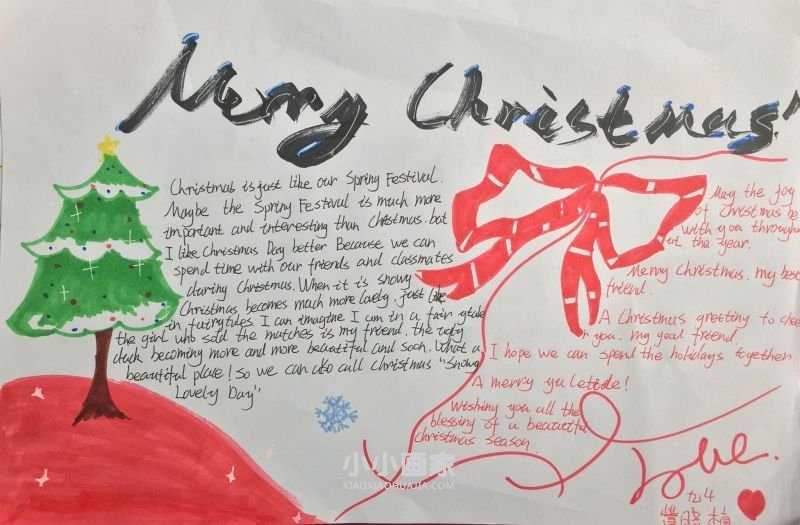 Merry Christmas
Christmas is just like our Spring Festival.
Maybe the Spring Festival is much more
important and interesting than Christmas. but
I like Christmas Day better Because we can
spend time with our friends and classmates
during Christmas. When it is snowy
Christmas becomes much more lovely. just like
in fairytales. I can imagine I am in a fairy tale
the girl who sald the matches is my friend, the ugly
duck becoming more and more beautiful and soon. What a
beautiful place! so we can also call christmas "snowy
Lovely Day"
May the joy
of Christmas be
with you through
out the year.
Merry Christmas. my best
friend.
A Christmas greeting to chee
r you. my goal friend.
I hope we can spend the holidays together
A merry yuletide!
Wishing you all the
blessing of a beautiful
christmas season.
Love.
小小画家
XIAOXIAOHUAJIA.COM